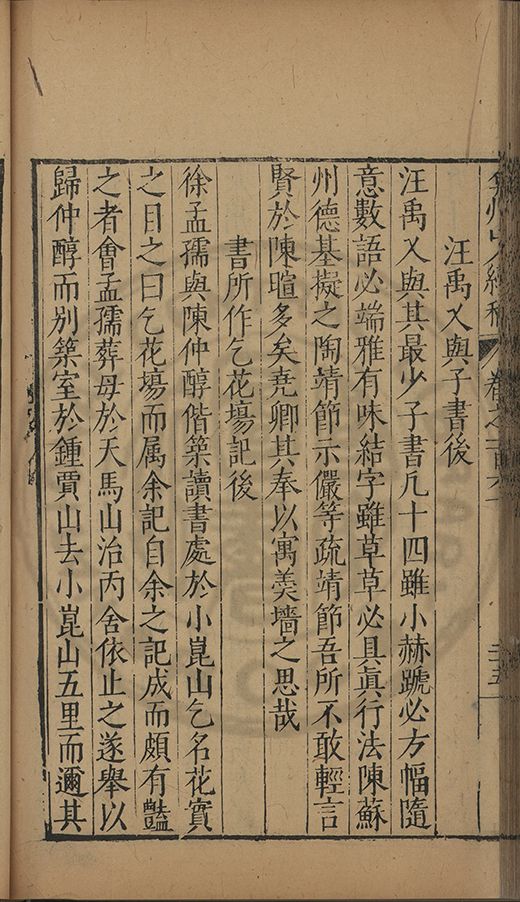 弇州山人續稿 卷之一百六十 二十五
汪禹乂與子書後
汪禹乂與其最少子書凡十四雖小赫蹏必方幅隨
意數語必端雅有味結字雖草草必具真行法陳蘇
州德基擬之陶靖節示儼等疏靖節吾所不敢輕言
賢於陳暄多矣堯卿其奉以寓羹墻之思哉
書所作乞花場記後
徐孟孺與陳仲醇偕築讀書處於小崑山乞名花實
之目之曰乞花場而属余記自余之記成而頗有豔
之者會孟孺葬母於天馬山治丙舍依止之遂舉以
歸仲醇而別築室於鍾賈山去小崑山五里而邇其